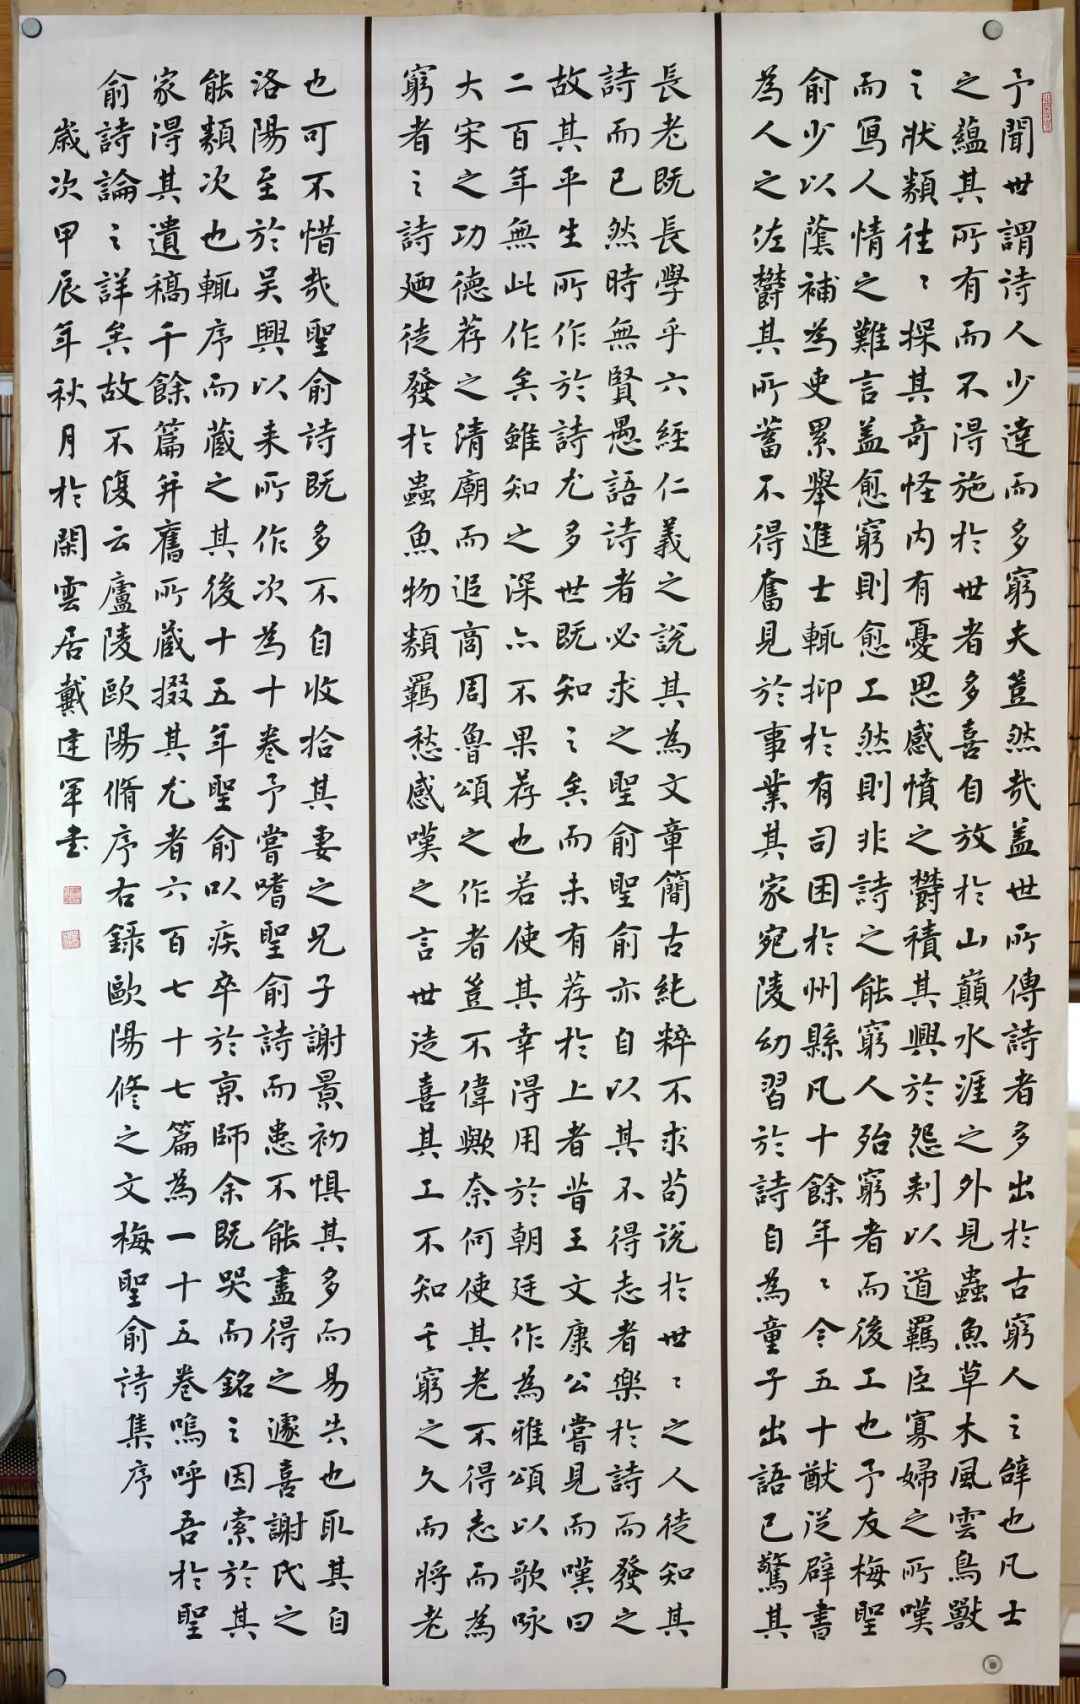 予聞世謂詩人少達而多窮夫豈然哉盖世所傳詩者多出於古窮人之辭也凡士
之蘊其所有而不得施於世者多喜自放於山巔水涯之外見蟲魚草木風雲鳥獸
之狀類往〻探其奇怪内有憂思感憤之鬱積其興於怨刺以道羈臣寡婦之所嘆
而寫人情之難言盖愈窮則愈工然則非詩之能窮人殆窮者而後工也予友梅聖
俞少以蔭補為吏累舉進士輒抑於有司困於州縣凡十餘年〻今五十猷從辟書
為人之佐鬱其所蓄不得奮見於事業其家宛陵幼習於詩自為童子出語已驚其
長老既長學乎六經仁義之說其為文章簡古純粹不求苟說於世〻之人徒知其
詩而已然時無賢愚語詩者必求之聖俞聖俞亦自以其不得志者樂於詩而發之
故其平生所作於詩尤多世既知之矣而未有荐於上者昔王文康公嘗見而嘆曰
二百年無此作矣雖知之深亦不果荐也若使其幸得用於朝廷作為雅頌以歌咏
大宋之功德荐之清廟而追商周魯頌之作者豈不偉歟奈何使其老不得志而為
窮者之詩廼徒發於蟲魚物類羈愁感嘆之言世徒喜其工不知其窮之久而將老
也可不惜哉聖俞詩既多不自收拾其妻之兄子謝景初懼其多而易失也取其自
洛陽至於吴興以来所作次為十卷予嘗嗜聖俞詩而患不能盡得之遽喜謝氏之
能類次也輒序而蔵之其後十五年聖俞以疾卒於京師余既哭而銘之因索於其
家得其遺稿千餘篇并舊所蔵掇其尤者六百七十七篇為一十五卷嗚呼吾於聖
俞詩論之詳矣故不復云廬陵歐陽脩序右録歐陽修之文梅聖俞詩集序
歲次甲辰年秋月於閑雲居戴建軍書